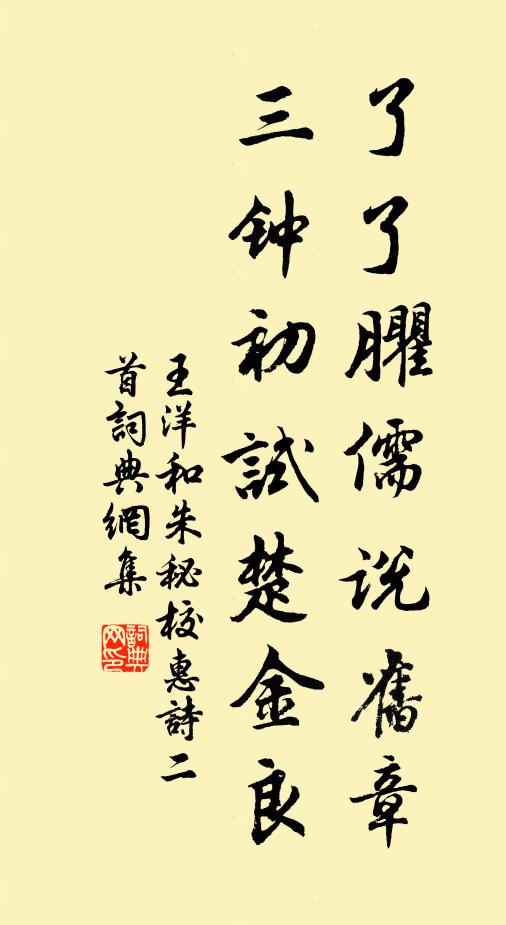 了了臞儒說舊章
三钟初試楚金良
王洋和朱秘校惠詩二
首詞典網集
詞典
网印